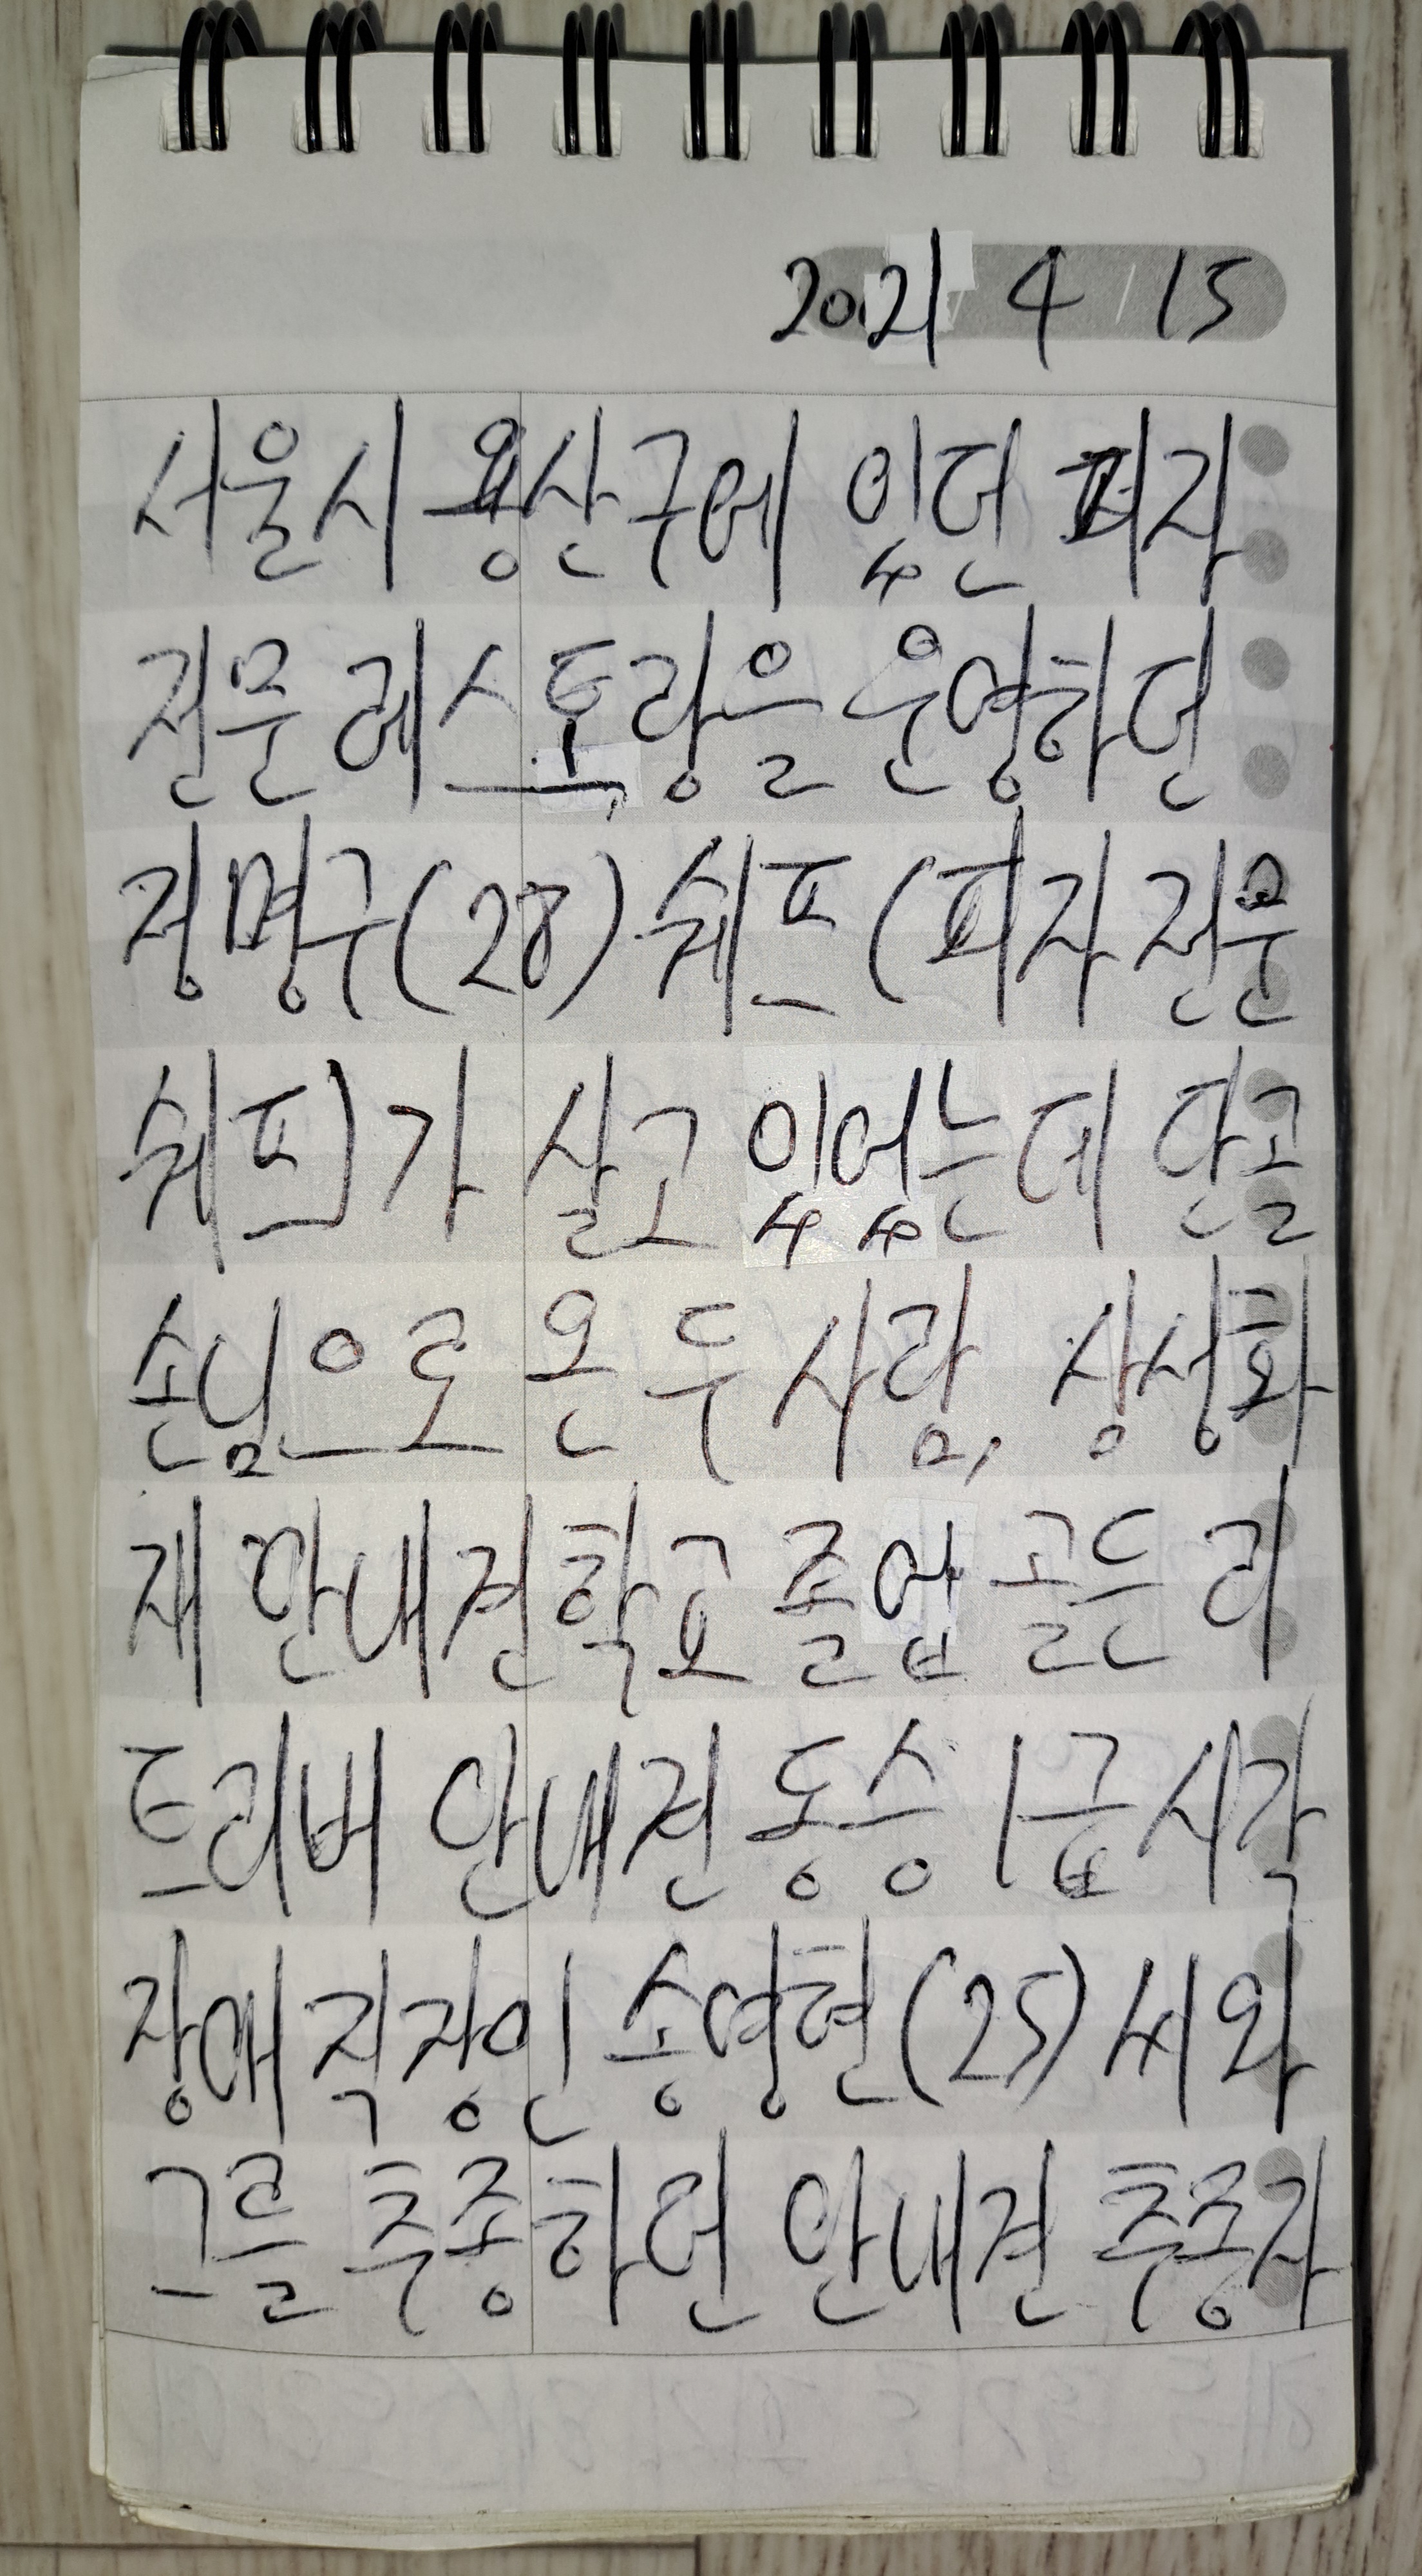 2021 4 15
서울시 용산구에 있던 피자
전문 레스토랑을 운영하던
정명구(28) 쉐프(피자 전문
쉐프)가 살고 있었는데 단골
손님으로 온 두 사람, 삼성화
재 안내견학교 졸업 골든 리
트리버 안내견 동승 1급 시각
장애 직장인 송영현(25)씨와
그를 추종하던 안내견 추종자